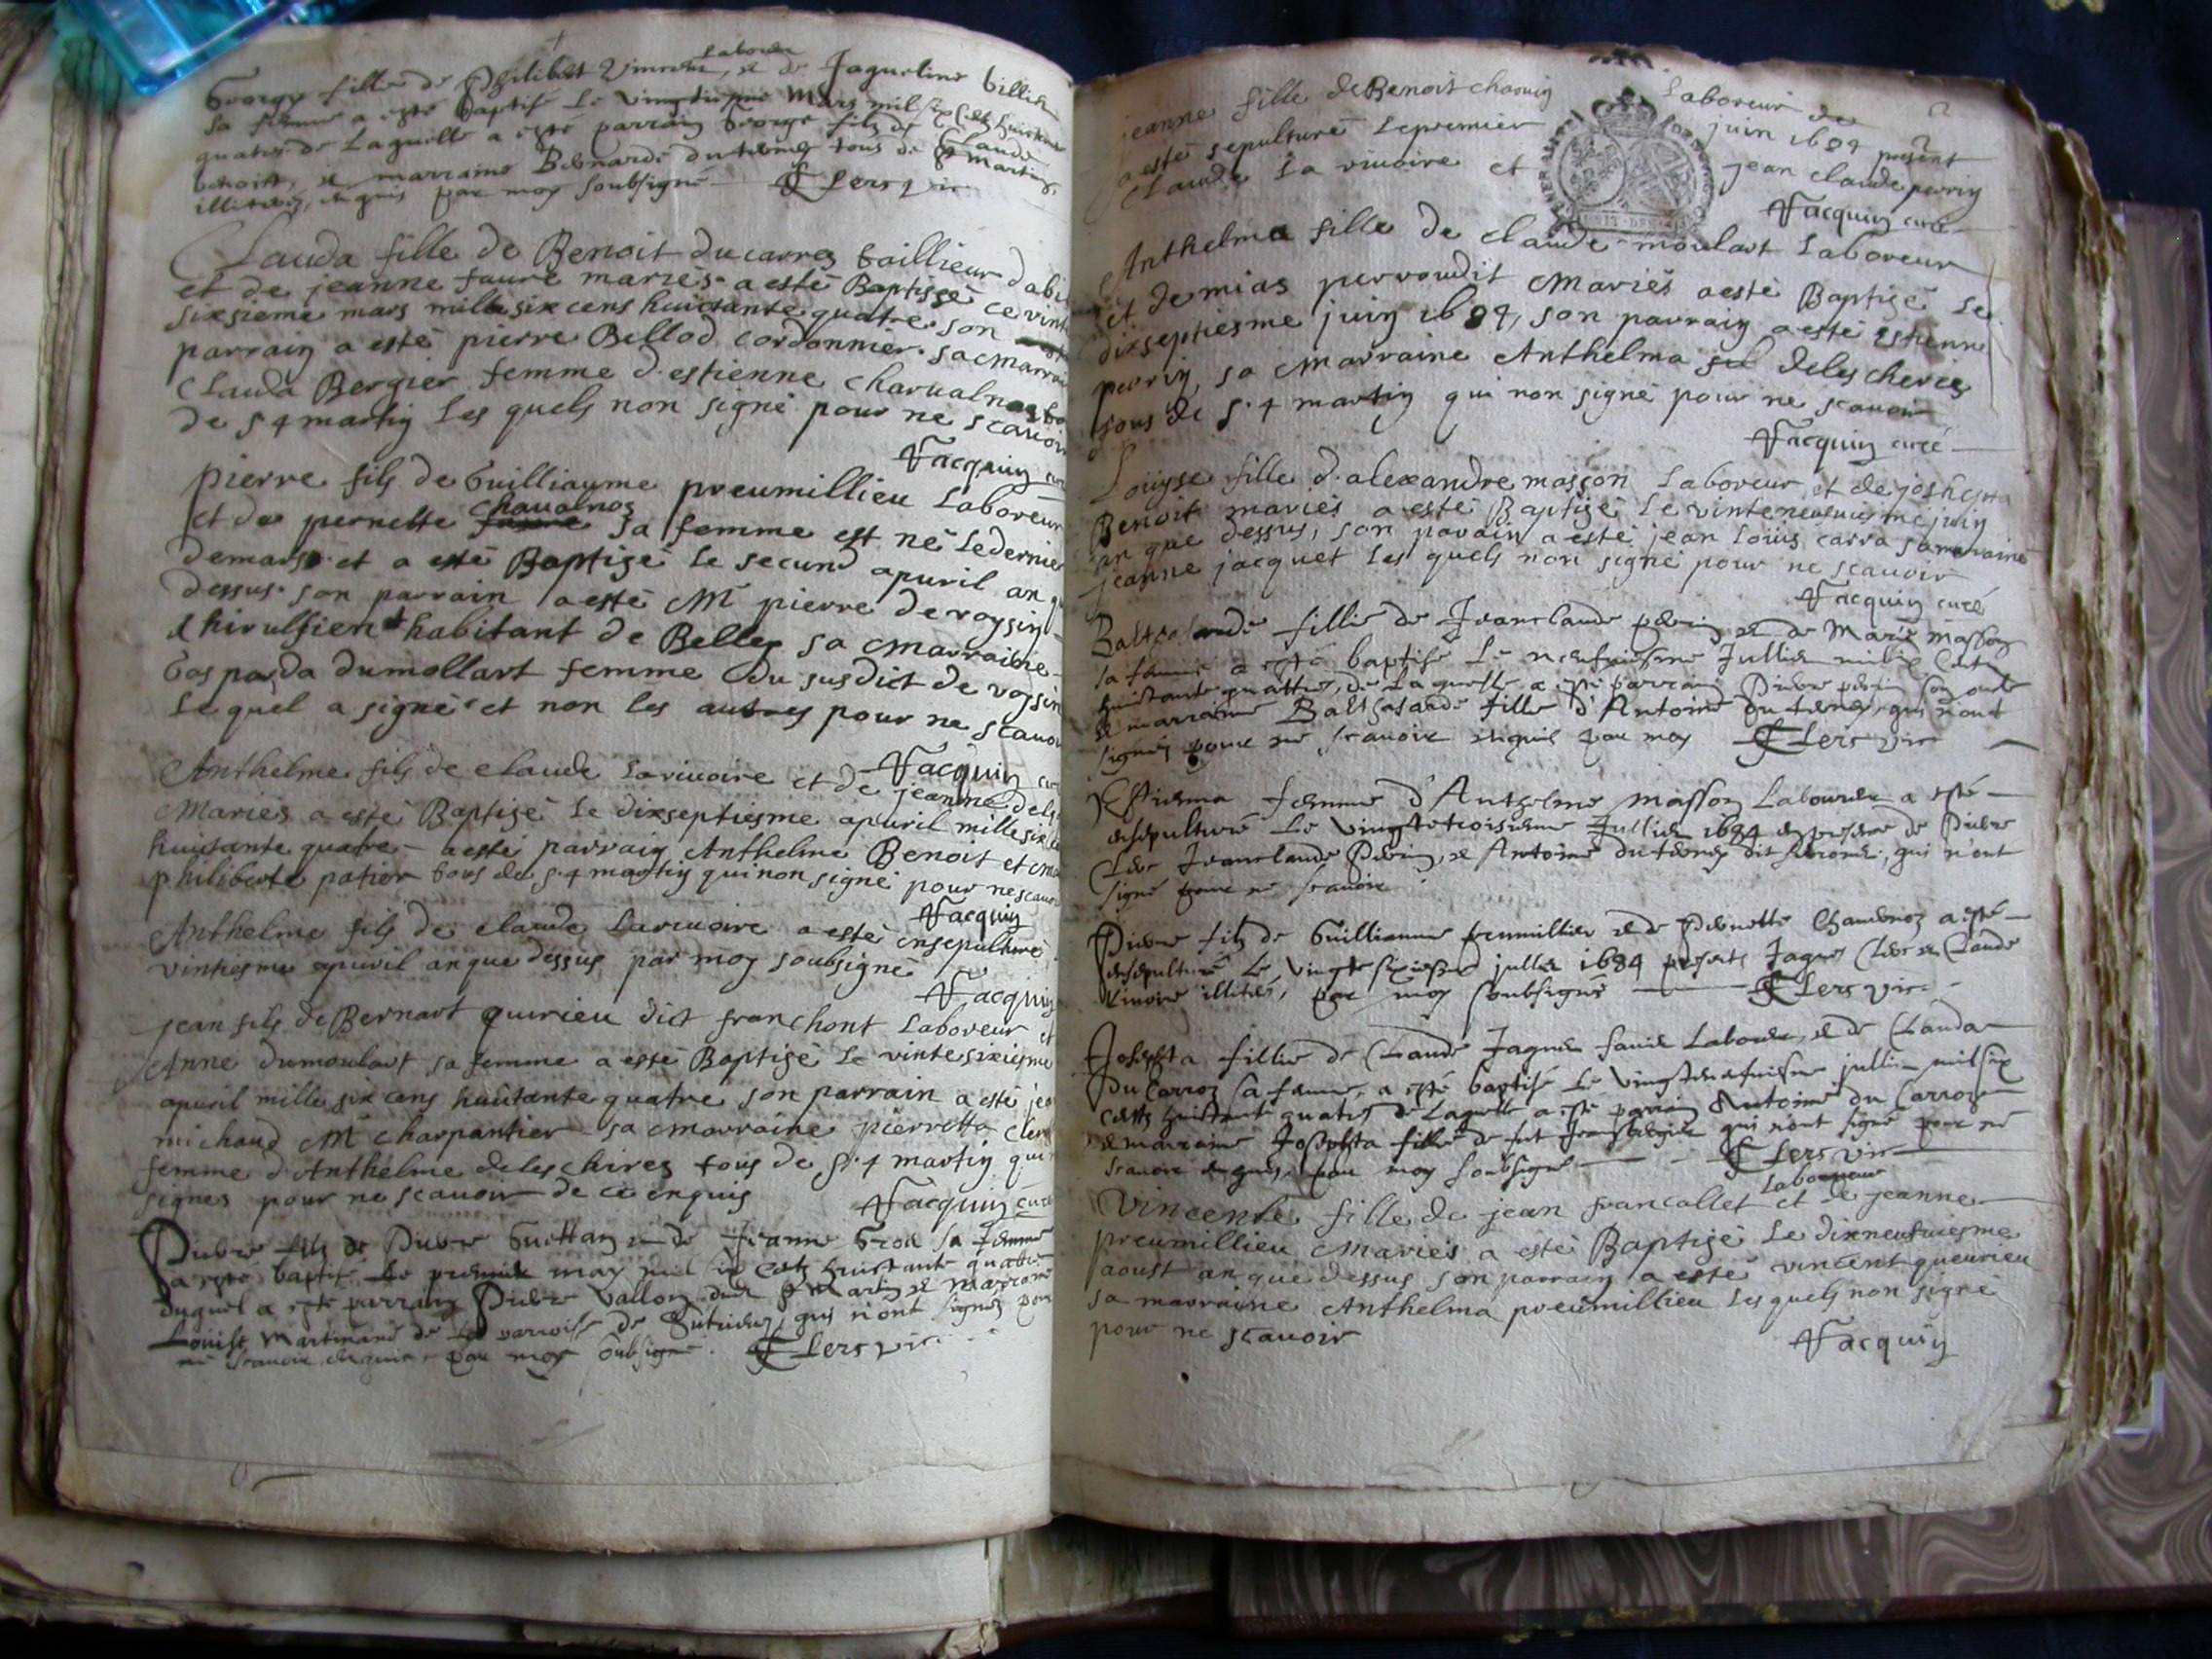 Labourer
fille de Philibert et de Jaqueline
sa femme a esté baptisé le vingtiesme Mars mil six cents huictante
quatre de laquelle a esté parrain George fils de Claude
benoist, et marraine Bernarde dutemps tous de St Martin,
illiterés, enquis par moy soubsigné Clers vic
Clauda fille de Benoit ducarroz tailleur d'abi
et de jeanne faure mariés a esté Baptisée ce vint
sixsieme mars mille six cens huictante quatre son
parrain a esté pierre Bellod cordonnier sa marrai
Clauda Bergier femme d'estienne charualnoz to
de St martin les quels non signé pour ne scauoir
Jacquin cur
pierre fils de Guilliaume preumillieu Laboreur
chaualnoz
et de pernette sa femme est né le dernier
de mars et a esté Baptizé le second apuril an q
dessus son parrain a esté M pierre de voysin
chirulsien habitant de Belley sa marraine
Gasparda dumollart femme du susdict de voysin
Lequel a signé et non les autres pour ne scauoi
Jacquin cur
Anthelme fils de claude Lariuoire et de jeanne dels
Mariés a esté Baptizé le dixseptiesme apuril mille six ce
huictante quatre a esté parrain Anthelme Benoit et ma
philiberte patier tous de St martin qui non signé pour ne scauoi
Jacquin
Anthelme fils de claude Lariuoire a esté ensepulturé
vintiesme apuril an que dessus par moy soubsigné
Jacquin
jean fils de Bernart quirieu dict franchont Laboreur et
Anne dumoulart sa femme a esté Baptizé le vintesixiesme
apuril mille six cens huictante quatre son parrain a esté jea
michaud M charpantier sa marraine pierretta Cler
femme d'Anthelme deleschires tous de St martin qui
signés pour ne scauoir de ce enquis Jacquin curé
Pierre fils de Pierre Guettan et de Jeanne sa femme
a esté baptisé le premier may mil six cents huictante quatre
duquel a esté parrain Pierre Vallon de St Martin et Marraine
Louise Martinand de qui n'ont signés pour
ne scauoir, enquis, par moy soubsigné. Clers vic
jeanne fille de Benoit charuin Laboreur de
a esté sepulturé le premier juin 1684 present
Claude La riuoire et jean claude perrin
Jacquin curé
Anthelma fille de claude moulart Laboreur
et demias perroudit Mariés a esté Baptizé le
dixseptiesme juin 1684, son parrain a esté estienne
perrin, sa Marraine Anthelma deleschires
tous de St martin qui non signé pour ne scauoir
Jacquin curé
Louyse fille d'alexandre masson Laboreur et de joshept
Benoit mariés a esté Baptizé le vinteneuuiesme juin
an que dessus, son parain a esté jean Louis carra sa maraine
jeanne jacquet les quels non signé pour ne scauoir
Jacquin curé
Baltesarde fillie de Jeanclaude perrin et de Marie Masson
sa femme a esté baptisé le neufuiesme Jullier mil six cents
huictante quattre, de laquelle a esté parrain Pierre perrin son oncle
et marraine Baltesarde fille d'Antoine du temps, qui n'ont
signés pour ne scauoir enquis par moy Clers vic
Estienna femme d'Anthelme Masson Labourer a esté
ensepulturé le vingtetroisieme Jullier 1684 en presence de Pierre
Clerc Jeanclaude Perrin, et Antoine dutemps dit, qui n'ont
signé pour ne scauoir
Pierre fils de Guilliaume preumillieu et de Pernette Chaualnoz a esté
ensepulturé le vingtesixiesme jullier 1684 presents Jaques Clerc et Claude
Riuoire illiteré, par moy soubsigné Clers vic
Josephta fillie de Claude Jaques Labourer, et de Clauda
du Carroz sa femme, a esté baptisé le vingteneufuiesme jullier mil six
cents huictante quatre de laquelle a esté parrain Antoine du Carroz
et marraine Josephta fille de fut qui n'ont signé pour ne
scauoir enquis, par moy soubsigné Clers vic
Laboureur
Vincente fille de jean francallet et de jeanne
preumillieu Mariés a esté Baptizé le dixneufuiesme
aoust an que dessus son parrain a esté vincent queurieu
sa marraine Anthelma preumillieu les quels non signé
pour ne scauoir Jacquin